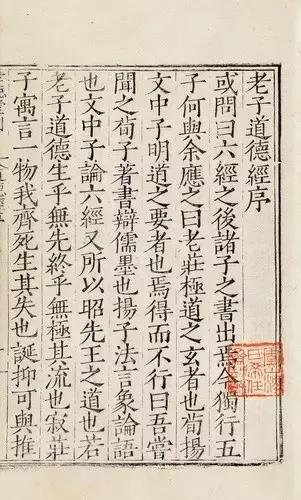 老子道德經序
或問曰六經之後諸子之書出焉今獨行五
子何與余應之曰老莊極道之玄者也荀揚
文中子明道之要者也焉得而不行曰吾嘗
聞之荀子著書辯儒墨也揚子法言象論語
也文中子論六經又所以昭先王之道也若
老子道德生乎無先終乎無極其流也寂莊
子寓言一物我齊死生其失也誕抑可與推